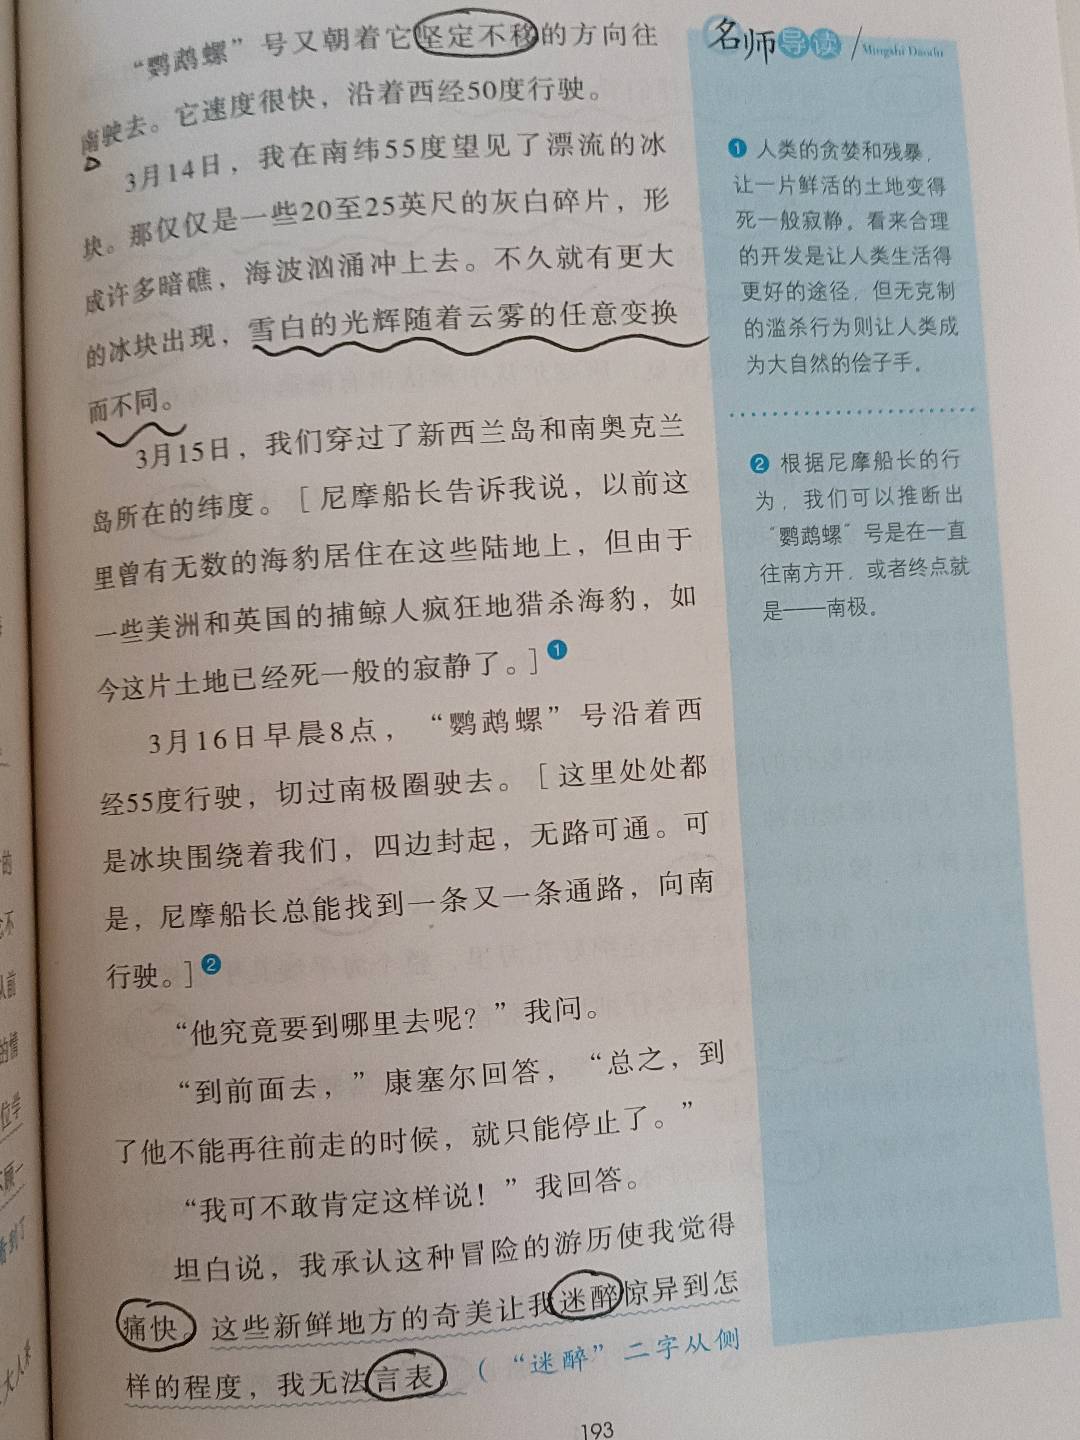 “鹦鹉螺”号又朝着它坚定不移的方向往
南驶去。它速度很快，沿着西经50度行驶。
3月14日，我在南纬55度望见了漂流的冰
块。那仅仅是一些20至25英尺的灰白碎片，形
成许多暗礁，海波汹涌冲上去。不久就有更大
的冰块出现，雪白的光辉随着云雾的任意变换
而不同。
3月15日，我们穿过了新西兰岛和南奥克兰
岛所在的纬度。［尼摩船长告诉我说，以前这
里曾有无数的海豹居住在这些陆地上，但由于
一些美洲和英国的捕鲸人疯狂地猎杀海豹，如
今这片土地已经死一般的寂静了。］❶
3月16日早晨8点，“鹦鹉螺”号沿着西
经55度行驶，切过南极圈驶去。［这里处处都
是冰块围绕着我们，四边封起，无路可通。可
是，尼摩船长总能找到一条又一条通路，向南
行驶。］❷
“他究竟要到哪里去呢？”我问。
“到前面去，”康塞尔回答，“总之，到
了他不能再往前走的时候，就只能停止了。”
“我可不敢肯定这样说！”我回答。
坦白说，我承认这种冒险的游历使我觉得
痛快。这些新鲜地方的奇美让我迷醉惊异到怎
样的程度，我无法言表。（“迷醉”二字从侧
193
名师导读 Mingshi Daodu
❶ 人类的贪婪和残暴，
让一片鲜活的土地变得
死一般寂静。看来合理
的开发是让人类生活得
更好的途径，但无克制
的滥杀行为则让人类成
为大自然的侩子手。
❷ 根据尼摩船长的行
为，我们可以推断出
“鹦鹉螺”号是在一直
往南方开，或者终点就
是——南极。
的
不
人前
的情
位学
顾一
看到了
大人来